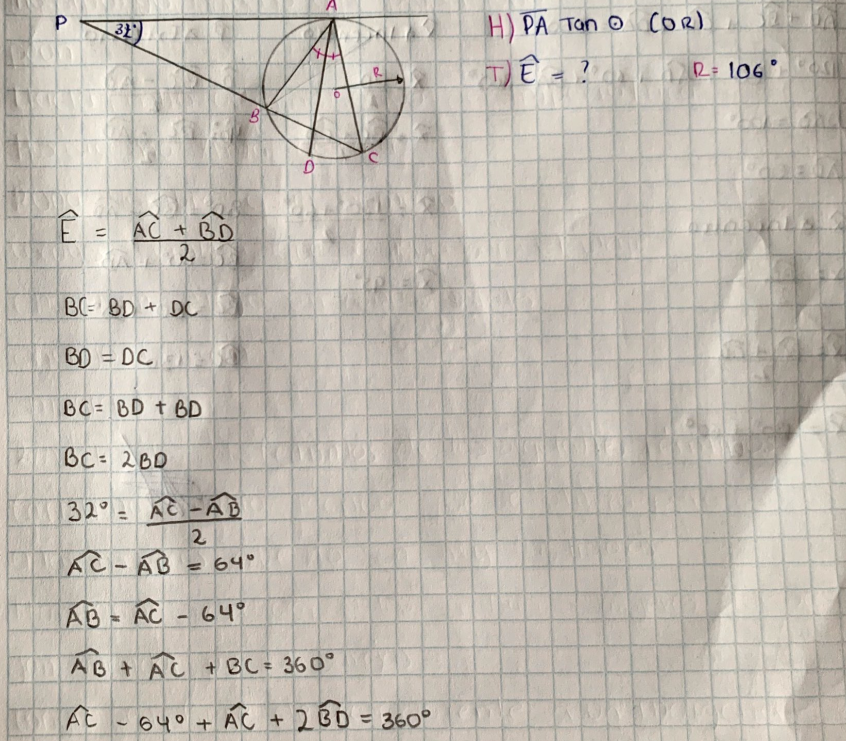 P
A
32°
B
D
C
O
R
H) PA Tan O (OR)
T) Ê = ?
R = 106°
Ê = AC + BD / 2
BC = BD + DC
BD = DC
BC = BD + BD
BC = 2BD
32° = AC - AB / 2
AC - AB = 64°
AB = AC - 64°
AB + AC + BC = 360°
AC - 64° + AC + 2BD = 360°